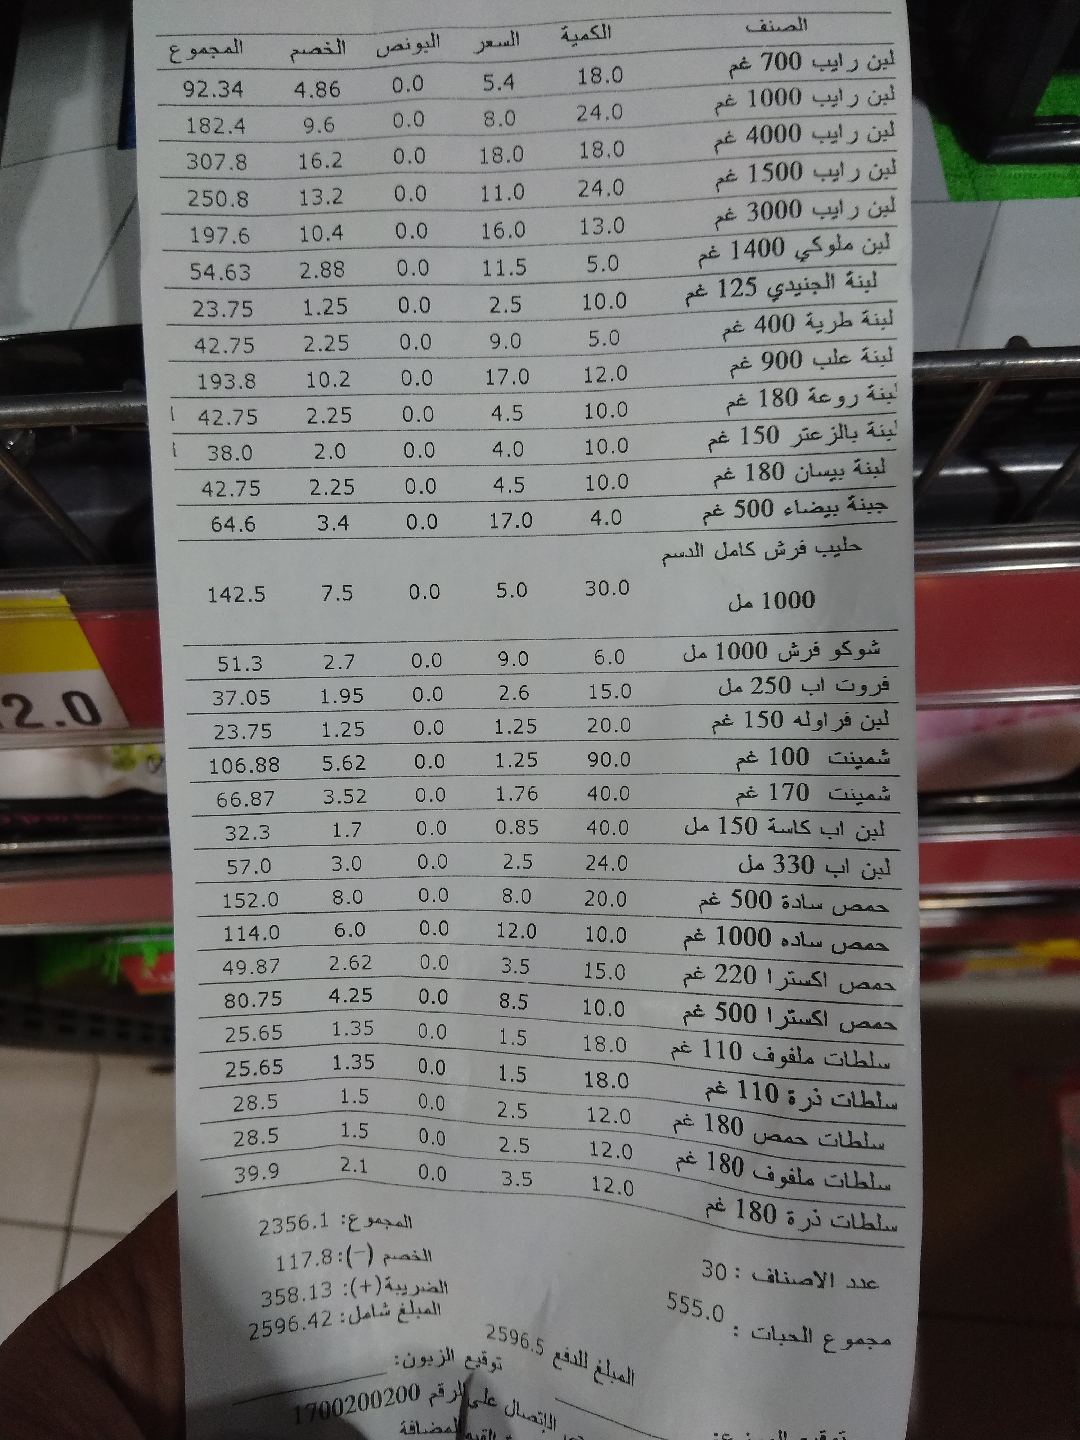 الصنف الكمية السعر البونص الخصم المجموع
لبن رايب 700 غم 18.0 5.4 0.0 4.86 92.34
لبن رايب 1000 غم 24.0 8.0 0.0 9.6 182.4
لبن رايب 4000 غم 18.0 18.0 0.0 16.2 307.8
لبن رايب 1500 غم 24.0 11.0 0.0 13.2 250.8
لبن رايب 3000 غم 13.0 16.0 0.0 10.4 197.6
لبن ملوكي 1400 غم 5.0 11.5 0.0 2.88 54.63
لبنة الجنيدي 125 غم 10.0 2.5 0.0 1.25 23.75
لبنة طرية 400 غم 5.0 9.0 0.0 2.25 42.75
لبنة علب 900 غم 12.0 17.0 0.0 10.2 193.8
لبنة روعة 180 غم 10.0 4.5 0.0 2.25 42.75
لبنة بالزعتر 150 غم 10.0 4.0 0.0 2.0 38.0
لبنة بيسان 180 غم 10.0 4.5 0.0 2.25 42.75
جبنة بيضاء 500 غم 4.0 17.0 0.0 3.4 64.6
حليب فرش كامل الدسم
1000 مل 30.0 5.0 0.0 7.5 142.5
شوكو فرش 1000 مل 6.0 9.0 0.0 2.7 51.3
فروت اب 250 مل 15.0 2.6 0.0 1.95 37.05
لبن فراوله 150 غم 20.0 1.25 0.0 1.25 23.75
شمينت 100 غم 90.0 1.25 0.0 5.62 106.88
شمينت 170 غم 40.0 1.76 0.0 3.52 66.87
لبن اب كاسة 150 مل 40.0 0.85 0.0 1.7 32.3
لبن اب 330 مل 24.0 2.5 0.0 3.0 57.0
حمص سادة 500 غم 20.0 8.0 0.0 8.0 152.0
حمص ساده 1000 غم 10.0 12.0 0.0 6.0 114.0
حمص اكسترا 220 غم 15.0 3.5 0.0 2.62 49.87
حمص اكسترا 500 غم 10.0 8.5 0.0 4.25 80.75
سلطات ملفوف 110 غم 18.0 1.5 0.0 1.35 25.65
سلطات ذرة 110 غم 18.0 1.5 0.0 1.35 25.65
سلطات حمص 180 غم 12.0 2.5 0.0 1.5 28.5
سلطات ملفوف 180 غم 12.0 2.5 0.0 1.5 28.5
سلطات ذرة 180 غم 12.0 3.5 0.0 2.1 39.9
المجموع: 2356.1
الخصم (-): 117.8
الضريبة(+): 358.13
المبلغ شامل: 2596.42
عدد الاصناف : 30
مجموع الحبات : 555.0
المبلغ للدفع 2596.5
توقيع الزبون:
الإتصال على الرقم 1700200200
المضافة
2.0